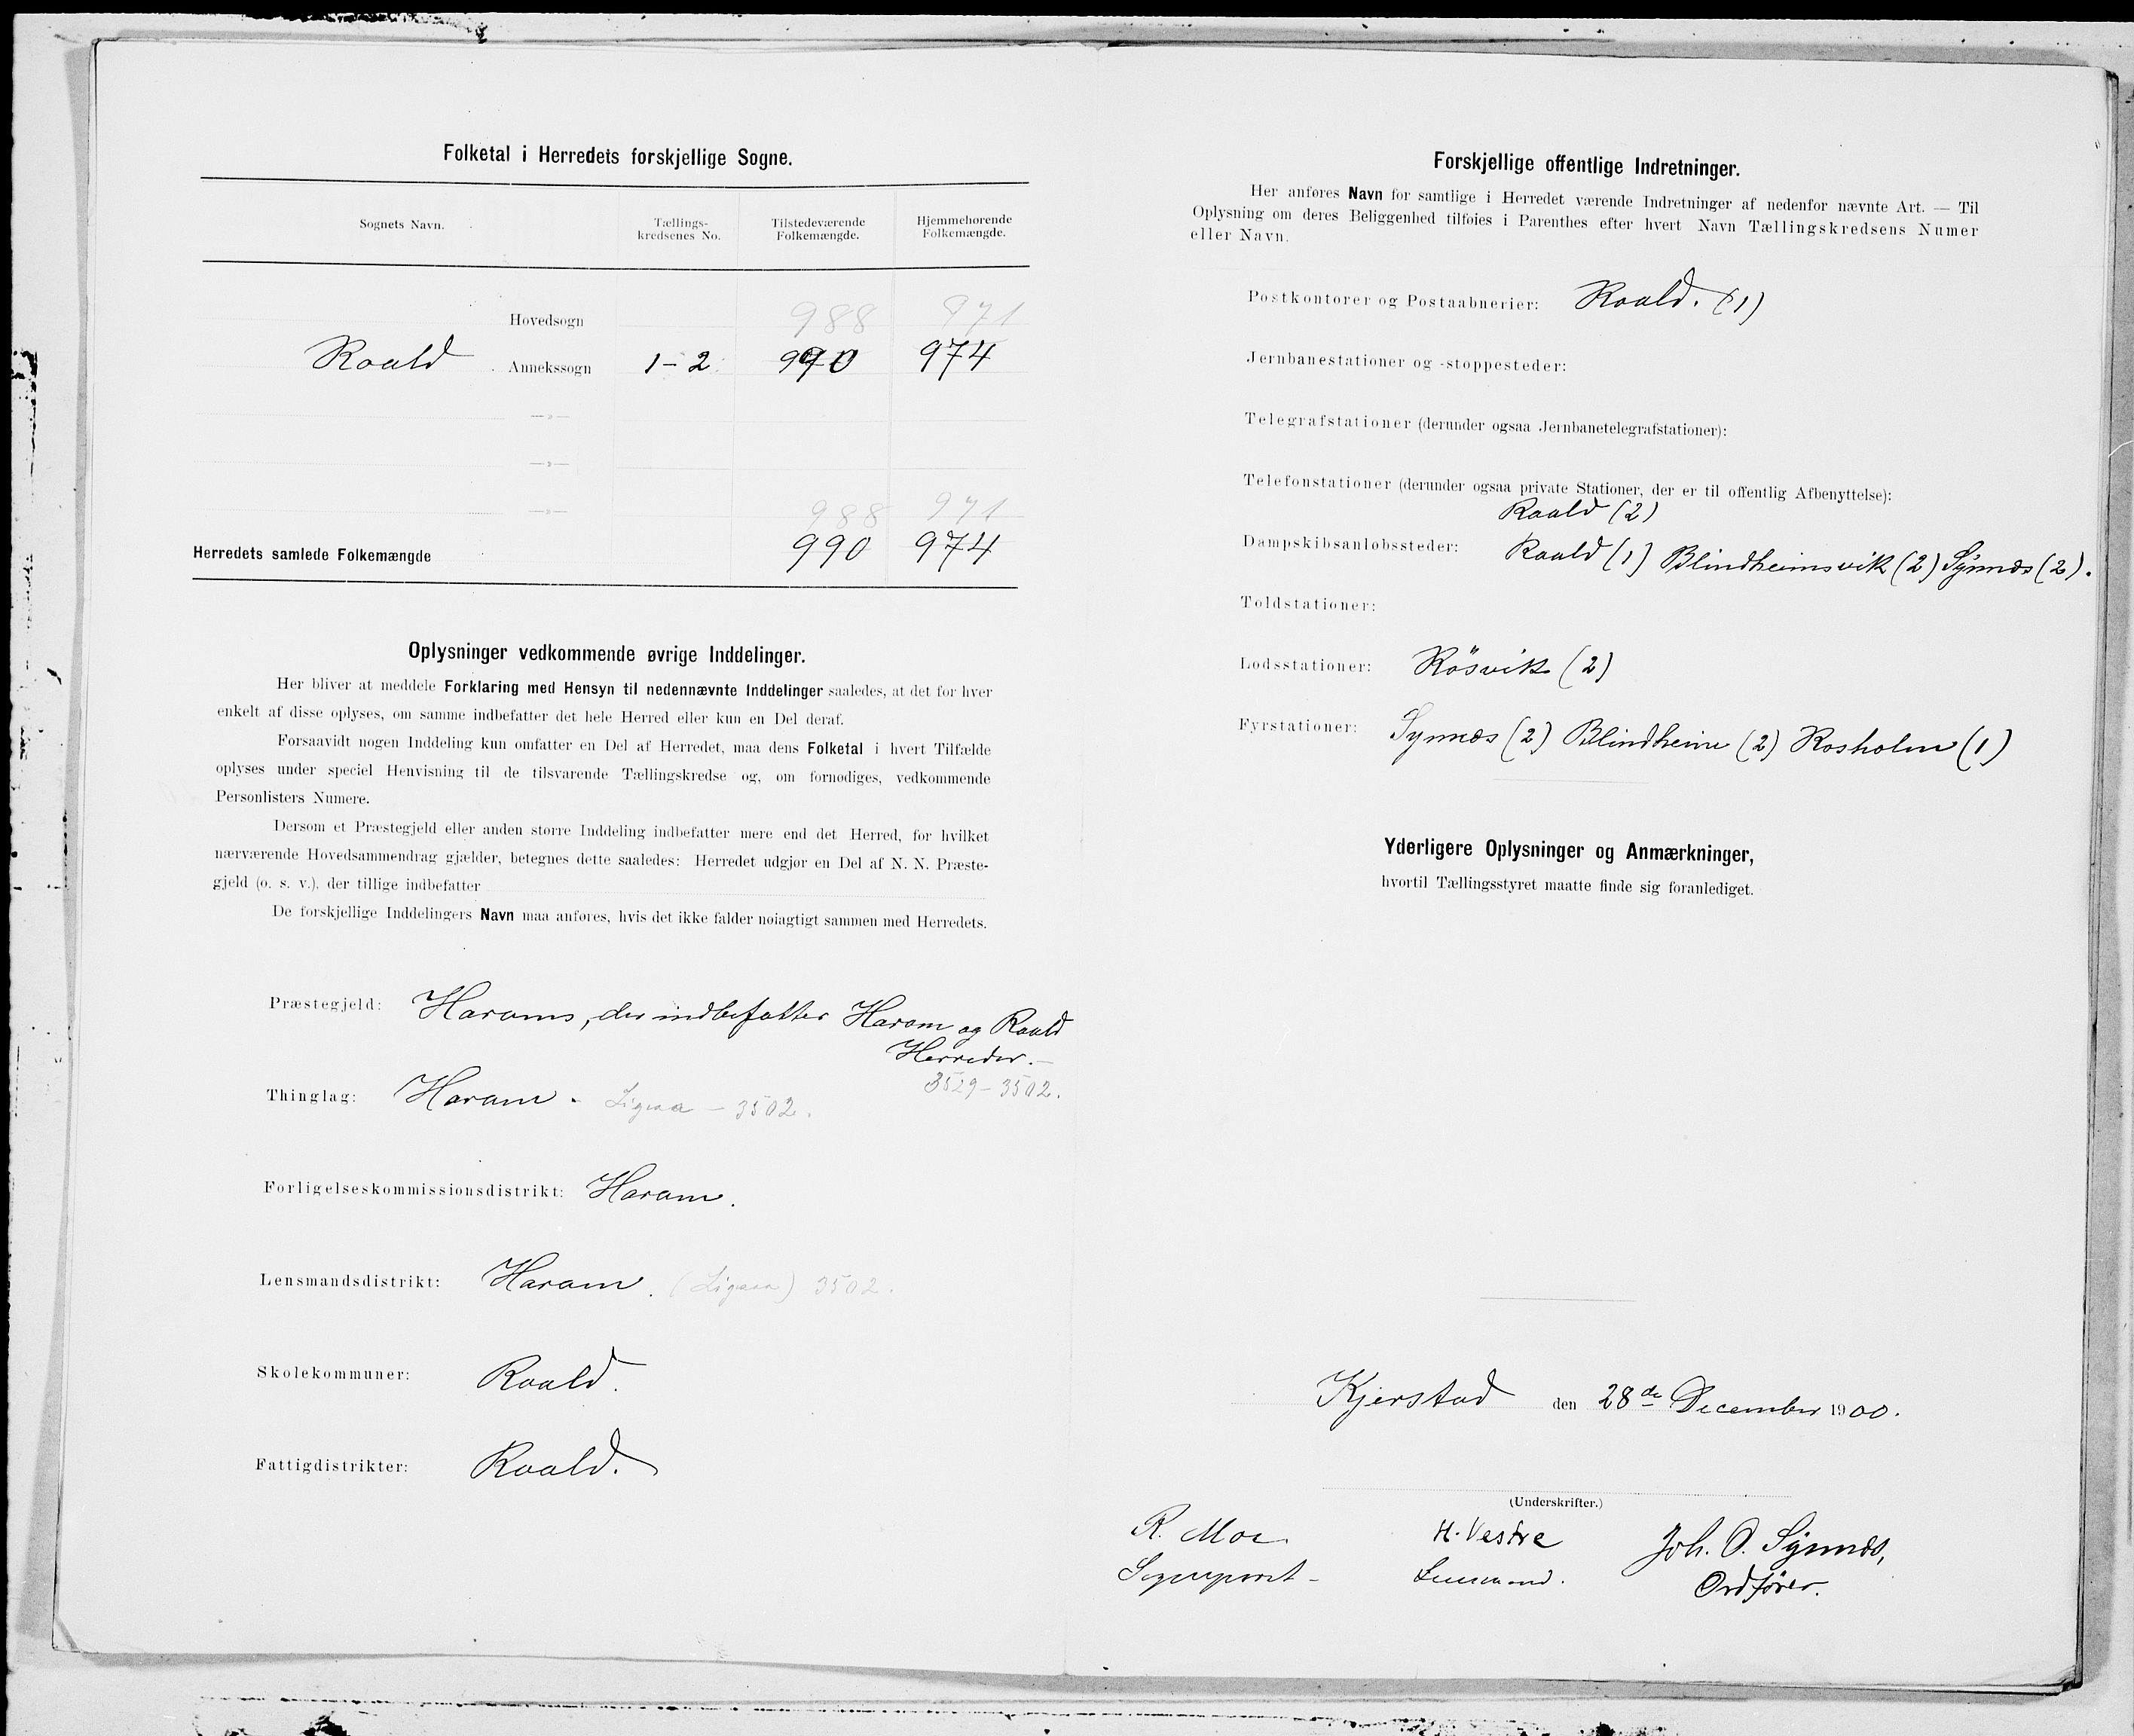 Folketal i Herredets forskjellige Sogne.
Sognets Navn. Tællings-kredsenes No. Tilstedeværende Folkemængde. Hjemmehørende Folkemængde.
988 971
Hovedsogn
Roald Annekssogn 1-2 990 974
—»—
—»—
988 971
—»—
Herredets samlede Folkemængde 990 974
Oplysninger vedkommende øvrige Inddelinger.
Her bliver at meddele Forklaring med Hensyn til nedennævnte Inddelinger saaledes, at det for hver
enkelt af disse oplyses, om samme indbefatter det hele Herred eller kun en Del deraf.
Forsaavidt nogen Inddeling kun omfatter en Del af Herredet, maa dens Folketal i hvert Tilfælde
oplyses under speciel Henvisning til de tilsvarende Tællingskredse og, om fornødiges, vedkommende
Personlisters Numere.
Dersom et Præstegjeld eller anden større Inddeling indbefatter mere end det Herred, for hvilket
nærværende Hovedsammendrag gjælder, betegnes dette saaledes: Herredet udgjør en Del af N. N. Præste-
gjeld (o. s. v.), der tillige indbefatter
De forskjellige Inddelingers Navn maa anføres, hvis det ikke falder nøiagtigt sammen med Herredets.
Præstegjeld: Harams, der indbefatter Haram og Roald
Herreder.—
3529-3502.
Thinglag: Haram. Ligesaa - 3502.
Forligelseskommissionsdistrikt: Haram.
Lensmandsdistrikt: Haram. (Ligesaa) 3502.
Skolekommuner: Roald.
Fattigdistrikter: Roald.
Forskjellige offentlige Indretninger.
Her anføres Navn for samtlige i Herredet værende Indretninger af nedenfor nævnte Art. — Til
Oplysning om deres Beliggenhed tilføies i Parenthes efter hvert Navn Tællingskredsens Numer
eller Navn.
Postkontorer og Postaabnerier: Roald. (1)
Jernbanestationer og -stoppesteder:
Telegrafstationer (derunder ogsaa Jernbanetelegrafstationer):
Telefonstationer (derunder ogsaa private Stationer, der er til offentlig Afbenyttelse):
Roald (2)
Dampskibsanløbssteder: Roald (1) Blindheimsvik (2) Synnæs (2).
Toldstationer:
Lodsstationer: Rösvik (2)
Fyrstationer: Synnæs (2) Blindheim (2) Rosholm (1)
Yderligere Oplysninger og Anmærkninger,
hvortil Tællingsstyret maatte finde sig foranlediget.
Kjerstad den 28de December 1900.
(Underskrifter.)
R. Moe H. Vestre Joh. O. Synnæs,
Sogneprest - Lensmand. Ordfører.